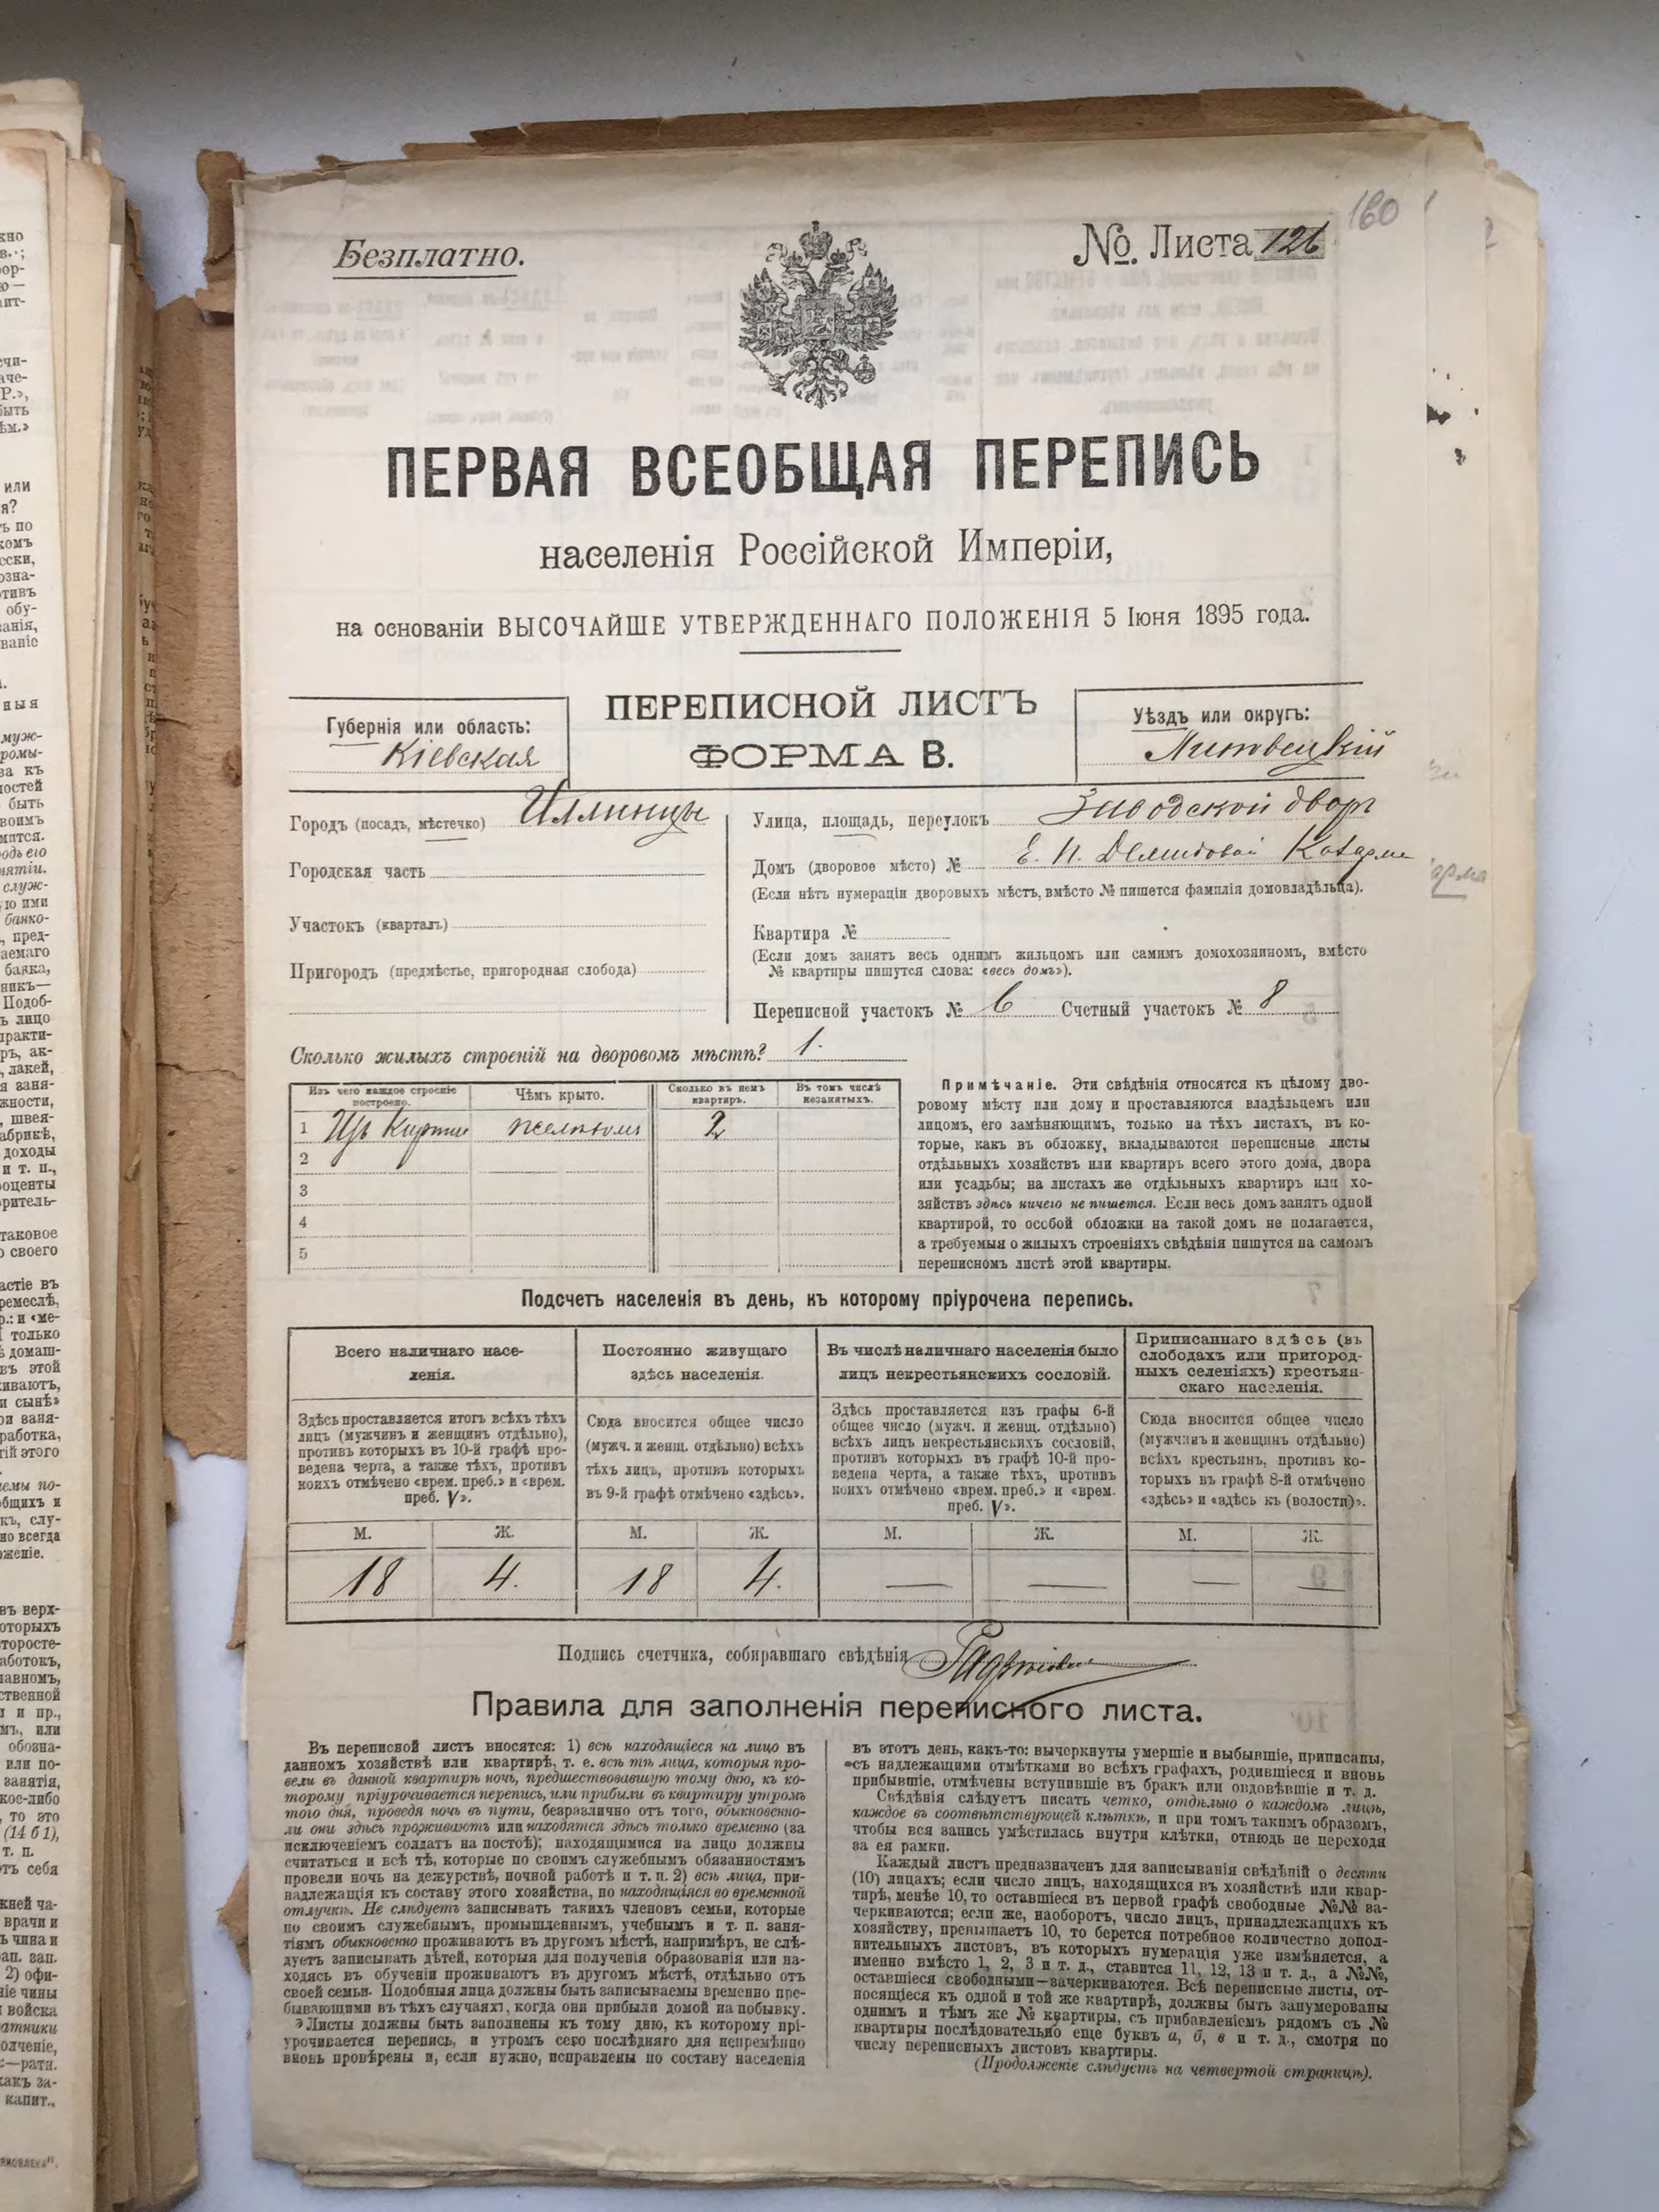 160
Безплатно.
№. Листа 126
ПЕРВАЯ ВСЕОБЩАЯ ПЕРЕПИСЬ
населенія Россійской Имперіи,
на основаніи ВЫСОЧАЙШЕ УТВЕРЖДЕННАГО ПОЛОЖЕНІЯ 5 Іюня 1895 года.
Губернія или область:
Кіевская
ПЕРЕПИСНОЙ ЛИСТЪ
ФОРМА В.
Уѣздъ или округъ:
Липовецкій
Городъ (посадъ, мѣстечко) Иллинцы
Городская часть
Участокъ (кварталъ)
Пригородъ (предмѣстье, пригородная слобода)
Улица, площадь, переулокъ Заводской дворъ
Домъ (дворовое мѣсто) № Е. П. Демидовой Казарма
(Если нѣтъ нумераціи дворовыхъ мѣстъ, вмѣсто № пишется фамилія домовладѣльца).
Квартира №
(Если домъ занятъ весь однимъ жильцомъ или самимъ домохозяиномъ, вмѣсто
№ квартиры пишутся слова: «весь домъ»).
Переписной участокъ № 6 Счетный участокъ № 8
Сколько жилыхъ строеній на дворовомъ мѣстѣ? 1.
Изъ чего каждое строеніе построено. Чѣмъ крыто. Сколько въ немъ квартиръ. Въ томъ числѣ незанятыхъ.
1 Изъ Кирпич желѣзомъ 2
2
3
4
5
Примѣчаніе. Эти свѣдѣнія относятся къ цѣлому дво-
ровому мѣсту или дому и проставляются владѣльцемъ или
лицомъ, его замѣняющимъ, только на тѣхъ листахъ, въ ко-
торые, какъ въ обложку, вкладываются переписные листы
отдѣльныхъ хозяйствъ или квартиръ всего этого дома, двора
или усадьбы; на листахъ же отдѣльныхъ квартиръ или хо-
зяйствъ здѣсь ничего не пишется. Если весь домъ занятъ одной
квартирой, то особой обложки на такой домъ не полагается,
а требуемыя о жилыхъ строеніяхъ свѣдѣнія пишутся на самомъ
переписномъ листѣ этой квартиры.
Подсчетъ населенія въ день, къ которому пріурочена перепись.
Всего наличнаго насе-
ленія.
Здѣсь проставляется итогъ всѣхъ тѣхъ
лицъ (мужчинъ и женщинъ отдѣльно),
противъ которыхъ въ 10-й графѣ про-
ведена черта, а также тѣхъ, противъ
коихъ отмѣчено «врем. преб.» и «врем.
преб. V».
Постоянно живущаго
здѣсь населенія.
Сюда вносится общее число
(мужч. и женщ. отдѣльно) всѣхъ
тѣхъ лицъ, противъ которыхъ
въ 9-й графѣ отмѣчено «здѣсь».
Въ числѣ наличнаго населенія было
лицъ некрестьянскихъ сословій.
Здѣсь проставляется изъ графы 6-й
общее число (мужч. и женщ. отдѣльно)
всѣхъ лицъ некрестьянскихъ сословій,
противъ которыхъ въ графѣ 10-й про-
ведена черта, а также тѣхъ, противъ
коихъ отмѣчено «врем. преб.» и «врем.
преб. V».
Приписаннаго здѣсь (въ
слободахъ или пригород-
ныхъ селеніяхъ) крестьян-
скаго населенія.
Сюда вносится общее число
(мужчинъ и женщинъ отдѣльно)
всѣхъ крестьянъ, противъ ко-
торыхъ въ графѣ 8-й отмѣчено
«здѣсь» и «здѣсь къ (волости)».
М. Ж. М. Ж. М. Ж. М. Ж.
18 4. 18 4. — — — —
Подпись счетчика, собиравшаго свѣдѣнія
Правила для заполненія переписного листа.
Въ переписной листъ вносятся: 1) всѣ находящіеся на лицо въ
данномъ хозяйствѣ или квартирѣ, т. е. всѣ тѣ лица, которыя про-
вели въ данной квартирѣ ночь, предшествовавшую тому дню, къ ко-
торому пріурочивается перепись, или прибыли въ квартиру утромъ
того дня, проведя ночь въ пути, безразлично отъ того, обыкновенно-
ли они здѣсь проживаютъ или находятся здѣсь только временно (за
исключеніемъ солдатъ на постоѣ); находящимися на лицо должны
считаться и всѣ тѣ, которые по своимъ служебнымъ обязанностямъ
провели ночь на дежурствѣ, ночной работѣ и т. п. 2) всѣ лица, при-
надлежащія къ составу этого хозяйства, но находящіяся во временной
отлучкѣ. Не слѣдуетъ записывать такихъ членовъ семьи, которые
по своимъ служебнымъ, промышленнымъ, учебнымъ и т. п. заня-
тіямъ обыкновенно проживаютъ въ другомъ мѣстѣ, напримѣръ, не слѣ-
дуетъ записывать дѣтей, которыя для полученія образованія или на-
ходясь въ обученіи проживаютъ въ другомъ мѣстѣ, отдѣльно отъ
своей семьи. Подобныя лица должны быть записываемы временно пре-
бывающими въ тѣхъ случаяхъ, когда они прибыли домой на побывку.
Листы должны быть заполнены къ тому дню, къ которому прі-
урочивается перепись, и утромъ сего послѣдняго дня непремѣнно
вновь провѣрены и, если нужно, исправлены по составу населенія
въ этотъ день, какъ-то: вычеркнуты умершіе и выбывшіе, приписаны,
съ надлежащими отмѣтками во всѣхъ графахъ, родившіеся и вновь
прибывшіе, отмѣчены вступившіе въ бракъ или овдовѣвшіе и т. д.
Свѣдѣнія слѣдуетъ писать четко, отдѣльно о каждомъ лицѣ,
каждое въ соотвѣтствующей клѣткѣ, и при томъ такимъ образомъ,
чтобы вся запись умѣстилась внутри клѣтки, отнюдь не переходя
за ея рамки.
Каждый листъ предназначенъ для записыванія свѣдѣній о десяти
(10) лицахъ; если число лицъ, находящихся въ хозяйствѣ или квар-
тирѣ, менѣе 10, то оставшіеся въ первой графѣ свободные №№ за-
черкиваются; если же, наоборотъ, число лицъ, принадлежащихъ къ
хозяйству, превышаетъ 10, то берется потребное количество допол-
нительныхъ листовъ, въ которыхъ нумерація уже измѣняется, а
именно вмѣсто 1, 2, 3 и т. д., ставится 11, 12, 13 и т. д., а №№,
оставшіеся свободными—зачеркиваются. Всѣ переписные листы, от-
носящіеся къ одной и той же квартирѣ, должны быть занумерованы
однимъ и тѣмъ же № квартиры, съ прибавленіемъ рядомъ съ №
квартиры послѣдовательно еще буквъ а, б, в и т. д., смотря по
числу переписныхъ листовъ квартиры.
(Продолженіе слѣдуетъ на четвертой страницѣ).